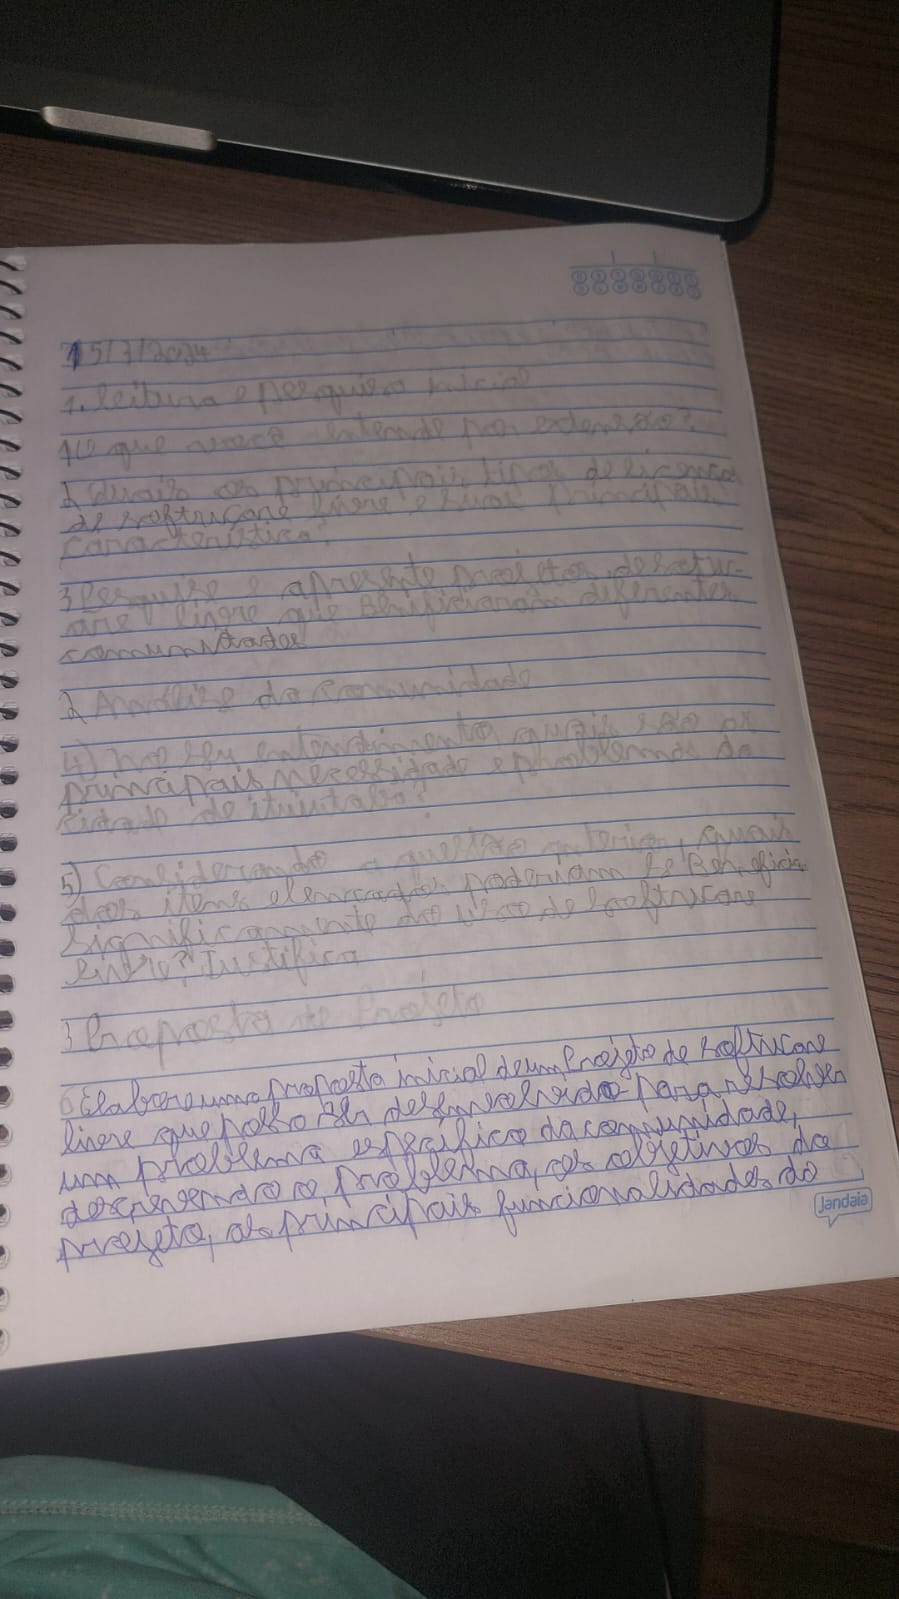 15/7/2024
1. leitura e pesquisa inicial
1) O que você entende por extensão?
2 Quais os principais tipos de licença
de software livre e suas principais
característica?
3 Pesquise e apresente projetos de softw-
are livre que Beneficiaram diferentes
comunidades
2 Análise da Comunidade
4) No seu entendimento, quais são as
principais necessidade e problemas da
cidade de ituiutaba?
5) Considerando a questão anterior, quais
dos itens elencados poderiam se Beneficia
significamente do uso de software
livre? Justifica
3 Proposta de Projeto
6 Elabore uma proposta inicial de um Projeto de software
livre que possa ser desenvolvido para resolver
um problema específico da comunidade,
descrevendo o problema, os objetivos do
projeto, as principais funcionalidades do
Jandaia